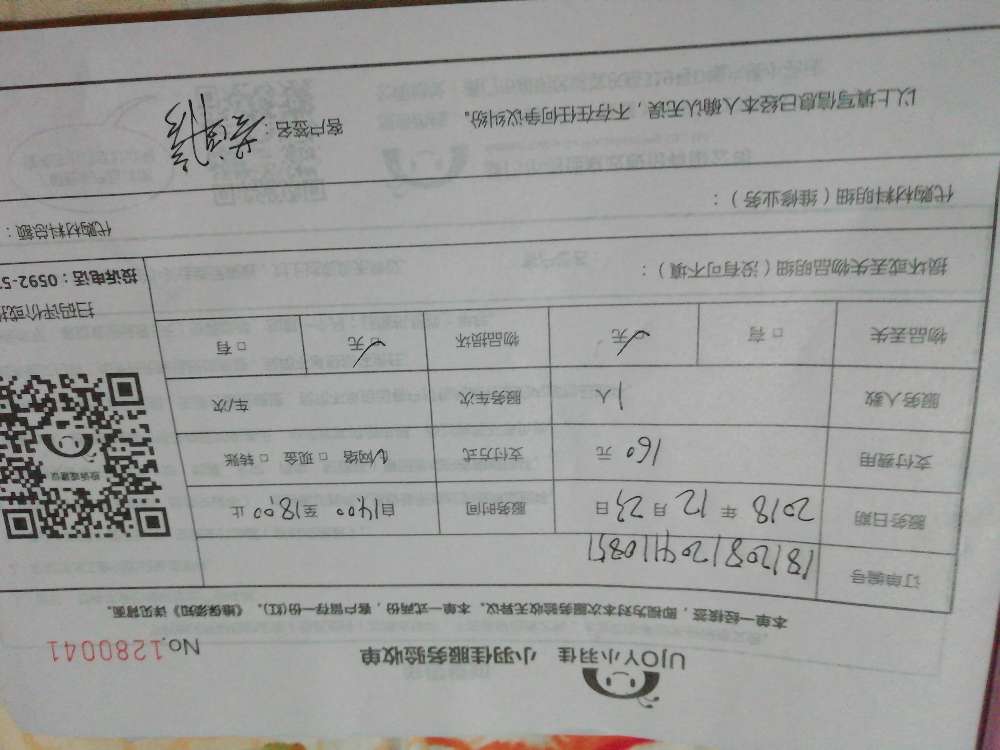 UJOY小羽佳 小羽佳服务验收单
No.1280041
本单一经接签，即视为对本次服务验收无异议。本单一式两份，客户留存一份(红)。《维保须知》详见背面。
订单编号 181208120411 0851
服务日期 2018 年 12 月 23 日 服务时间 自1400 至1800 止
支付费用 160 元 支付方式 网络 □ 现金 □ 转账
服务人数 1 人 服务车次 车/次
物品丢失 □ 有 无 物品损坏 无 □ 有
投诉或建议
扫码评价或
投诉电话：0592-5
损坏或丢失物品明细（没有可不填）：
代购材料明细（维修业务）：
代购材料总额：
以上填写信息已经本人确认无误，不存在任何争议纠纷。
客户签名：